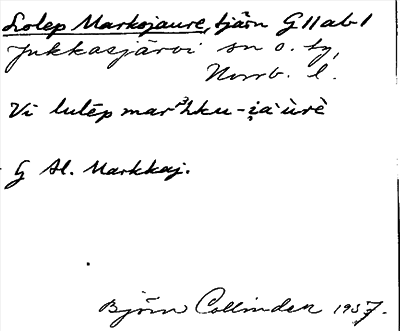 Lolep Markojaure, tjärn G11ab1
Jukkasjärvi sn o. tg,
Norrb. l.
Vi lulēp marᵌhku-i̯a'ùrè
G Al. Markkaj.
Björn Collinder 1937.